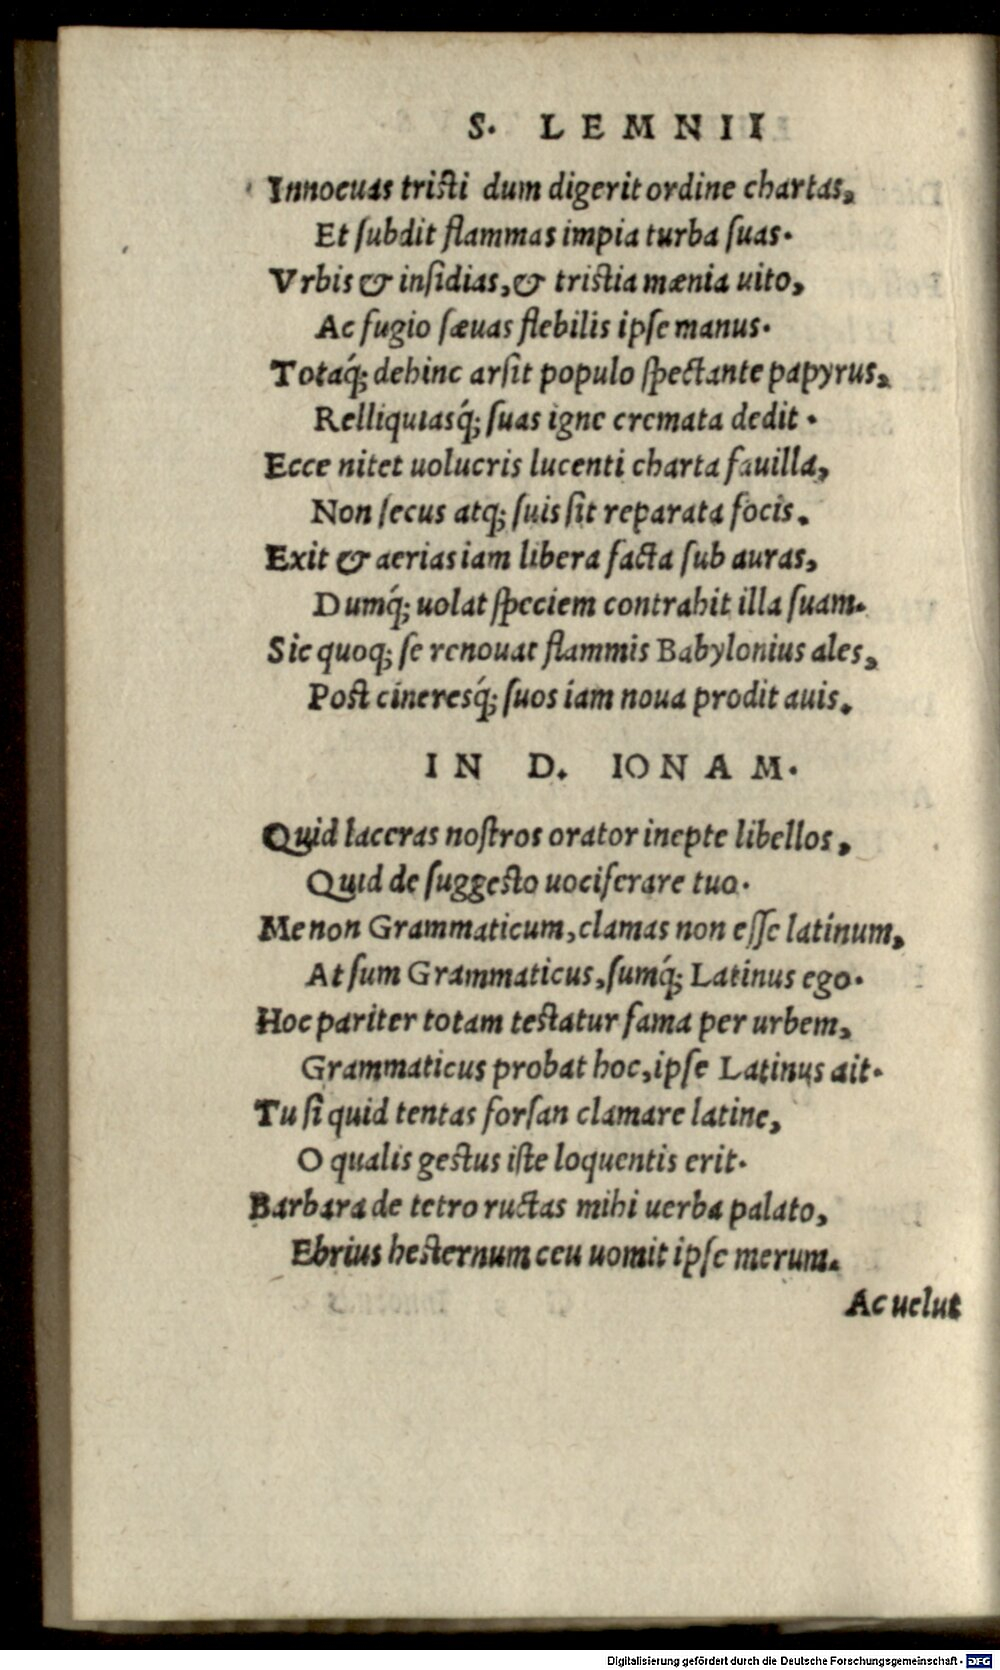 S. LEMNII
Innocuas tristi dum digerit ordine chartas,
Et ſubdit flammas impia turba ſuas.
Vrbis & inſidias, & tristia mænia uito,
Ac fugio ſæuas flebilis ipſe manus.
Totaq́; dehinc arſit populo ſpectante papyrus,
Relliquiasq́; ſuas igne cremata dedit.
Ecce nitet uolucris lucenti charta fauilla,
Non ſecus atq; ſuis ſit reparata focis.
Exit & aerias iam libera facta ſub auras,
Dumq́; uolat ſpeciem contrahit illa ſuam.
Sic quoq; ſe renouat flammis Babylonius ales,
Post cineresq́; ſuos iam noua prodit auis.
IN D. IONAM.
Quid laceras noſtros orator inepte libellos,
Quid de ſuggesto uociferare tuo.
Me non Grammaticum, clamas non eſſe latinum,
At ſum Grammaticus, ſumq́; Latinus ego.
Hoc pariter totam testatur fama per urbem,
Grammaticus probat hoc, ipſe Latinus ait.
Tu ſi quid tentas forſan clamare latine,
O qualis gestus iſte loquentis erit.
Barbara de tetro ructas mihi uerba palato,
Ebrius hesternum ceu uomit ipſe merum.
Ac uelut
Digitalisierung gefördert durch die Deutsche Forschungsgemeinschaft - DFG